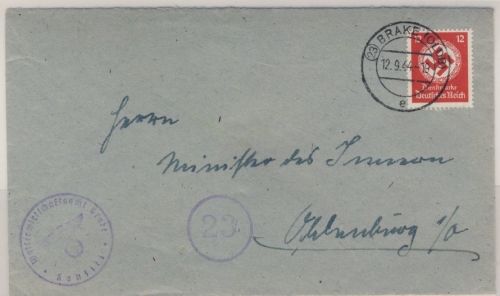 (23) BRAKE (OLDB)
12.9.44
e
12 12
Dienstmarke
Deutsches Reich
Herrn
Minister des Innern
23
Oldenburg i/O
Kanzlei